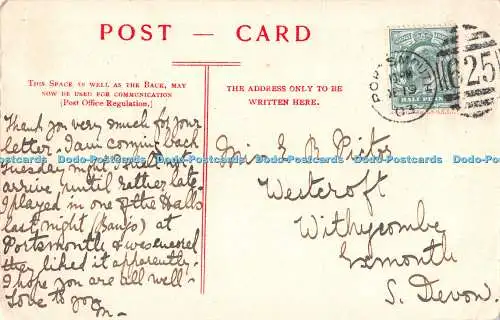 POST — CARD
THIS SPACE AS WELL AS THE BACK, MAY
NOW BE USED FOR COMMUNICATION
(Post Office Regulation.)
THE ADDRESS ONLY TO BE
WRITTEN HERE.
HALF PENNY
625
Thank you very much for your
letter. I am coming back
Tuesday night & shall not
arrive until rather late.
I played in one of the Halls
last night (Banjo) at
Portsmouth & was encored
they liked it apparently.
I hope you are all well —
Love to you
M —
E B
Westcroft
Withycombe
Exmouth
S. Devon.
Dodo-Postcards Dodo-Postcards Dodo-Postcards Dodo-Postcards